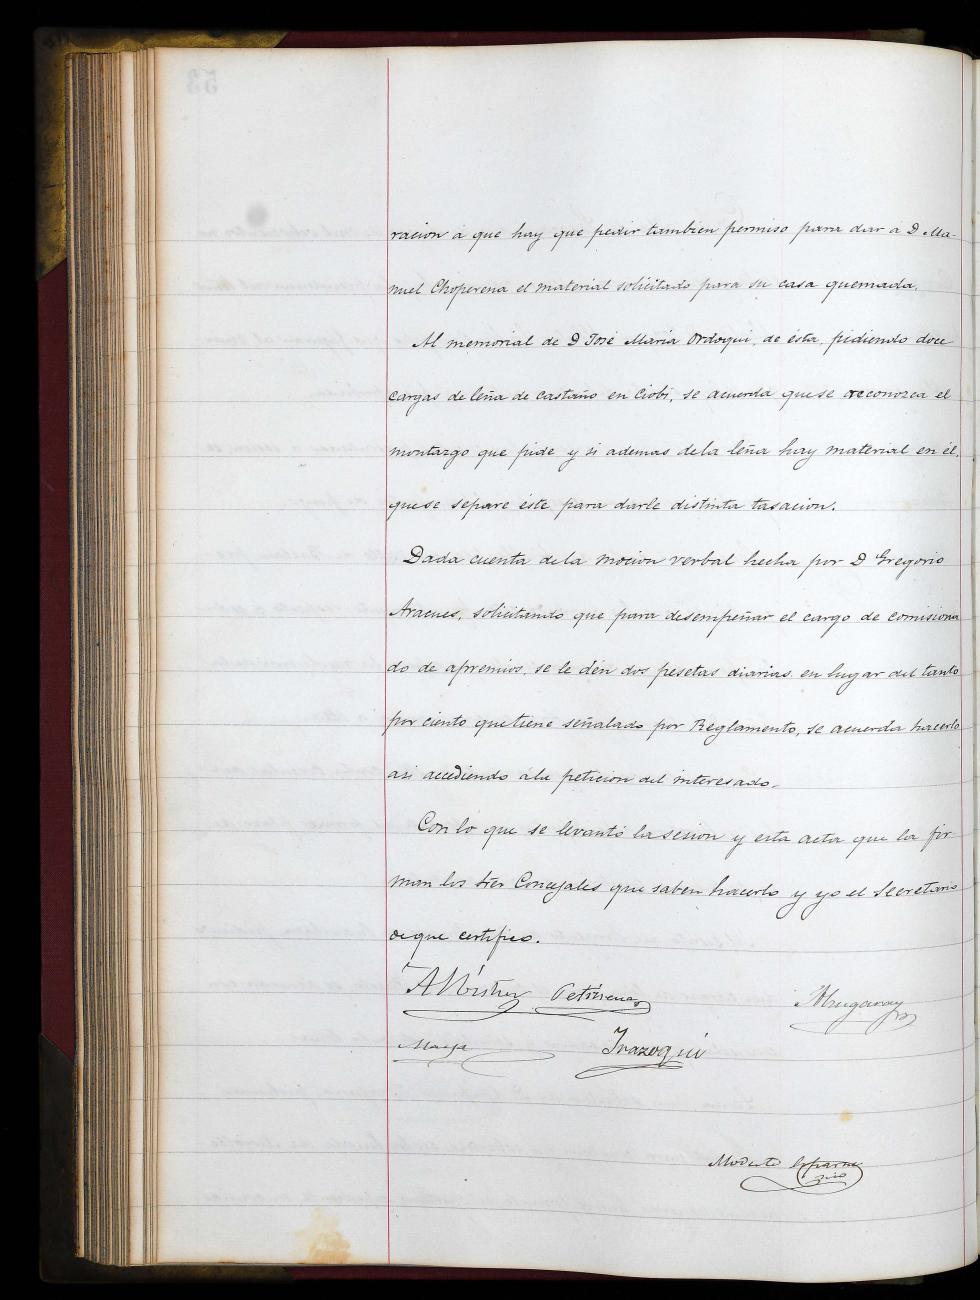 racion á que hay que pedir tambien permiso para dar á D Ma-
nuel Choperena el material solicitado para su casa quemada.
Al memorial de D José María Ordoqui, de ésta, pidiendo doce
cargas de leña de castaño en Ciobi, se acuerda que se reconozca el
montazgo que pide y si ademas de la leña hay material en él,
que se separe éste para darle distinta tasacion.
Dada cuenta de la mocion verbal hecha por D Gregorio
Aracues, solicitando que para desempeñar el cargo de comisiona
do de apremios, se le den dos pesetas diarias en lugar del tanto
por ciento que tiene señalado por Reglamento, se acuerda hacerlo
asi accediendo á la peticion del interesado.
Con lo que se levantó la sesion y esta acta que la fir
man los tres Concejales que saben hacerlo y yo el Secretario
de que certifico.
Petrirena
Irazoqui
Modesto